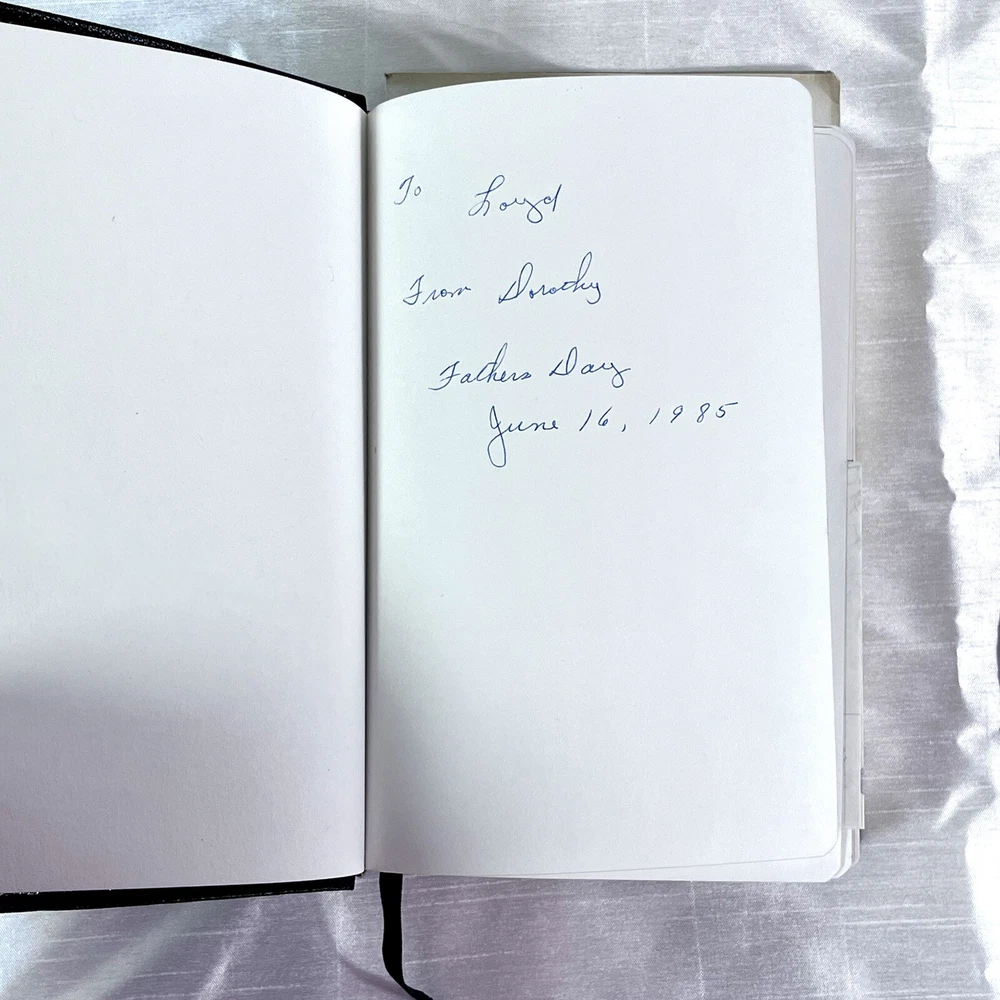 To Loyd
From Dorothy
Fathers Day
June 16, 1985